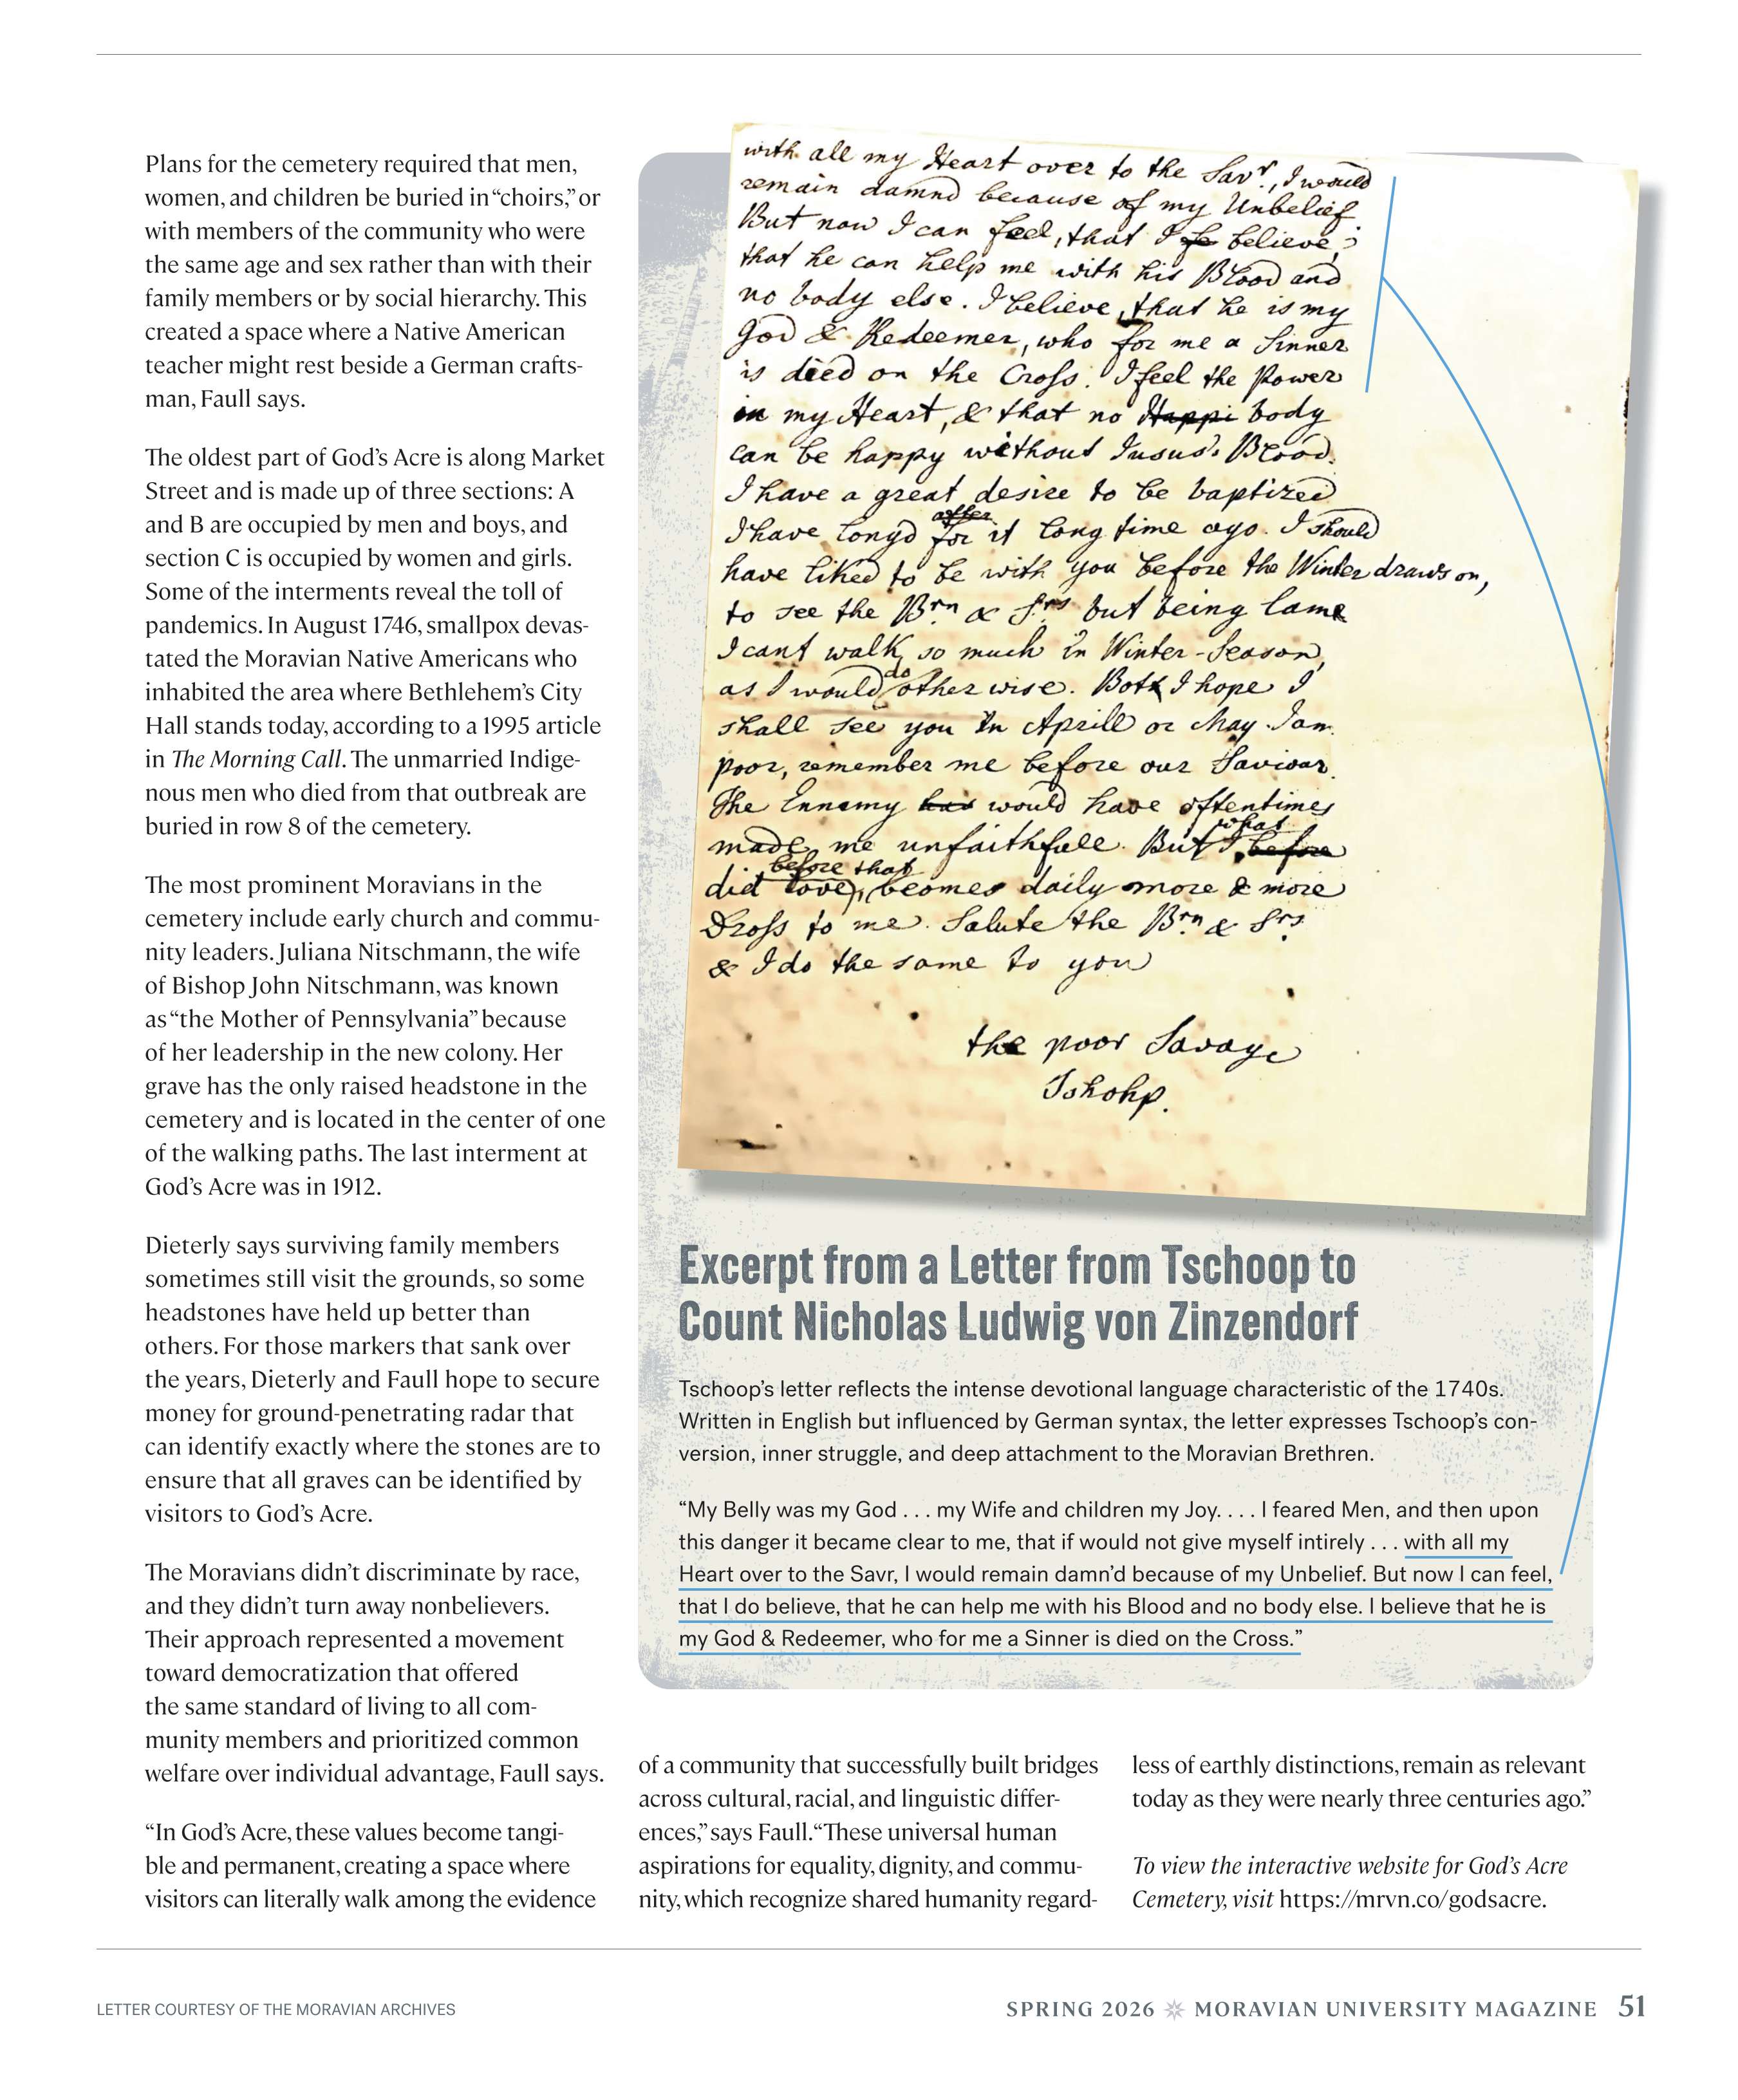 Plans for the cemetery required that men,
women, and children be buried in “choirs,” or
with members of the community who were
the same age and sex rather than with their
family members or by social hierarchy. This
created a space where a Native American
teacher might rest beside a German crafts-
man, Faull says.
The oldest part of God’s Acre is along Market
Street and is made up of three sections: A
and B are occupied by men and boys, and
section C is occupied by women and girls.
Some of the interments reveal the toll of
pandemics. In August 1746, smallpox devas-
tated the Moravian Native Americans who
inhabited the area where Bethlehem’s City
Hall stands today, according to a 1995 article
in The Morning Call. The unmarried Indige-
nous men who died from that outbreak are
buried in row 8 of the cemetery.
The most prominent Moravians in the
cemetery include early church and commu-
nity leaders. Juliana Nitschmann, the wife
of Bishop John Nitschmann, was known
as “the Mother of Pennsylvania” because
of her leadership in the new colony. Her
grave has the only raised headstone in the
cemetery and is located in the center of one
of the walking paths. The last interment at
God’s Acre was in 1912.
Dieterly says surviving family members
sometimes still visit the grounds, so some
headstones have held up better than
others. For those markers that sank over
the years, Dieterly and Faull hope to secure
money for ground-penetrating radar that
can identify exactly where the stones are to
ensure that all graves can be identified by
visitors to God’s Acre.
The Moravians didn’t discriminate by race,
and they didn’t turn away nonbelievers.
Their approach represented a movement
toward democratization that offered
the same standard of living to all com-
munity members and prioritized common
welfare over individual advantage, Faull says.
“In God’s Acre, these values become tangi-
ble and permanent, creating a space where
visitors can literally walk among the evidence
with all my Heart over to the Savr, I would
remain damnd because of my Unbelief
But now I can feel, that I do believe;
that he can help me with his Blood and
no body else. I believe, that he is my
God & Redeemer, who for me a Sinner
is died on the Cross. I feel the Power
in my Heart, & that no Happi body
can be happy without Jusus's Blood.
I have a great desire to be baptized
after
I have longd for it long time ago. I should
have liked to be with you before the Winter draws on,
to see the Brn & Srs but being lame
I cant walk so much in Winter-Season,
do
as I would otherwise. Both I hope I
shall see you in Aprill or May. I am
poor, remember me before our Saviour.
The Ennemy has would have oftentimes
what
made me unfaithfull. But I before
before that
did love, becomes daily more & more
Dross to me. Salute the Brn & Srs
& I do the same to you
the poor Savage
Tshohp.
Excerpt from a Letter from Tschoop to
Count Nicholas Ludwig von Zinzendorf
Tschoop’s letter reflects the intense devotional language characteristic of the 1740s.
Written in English but influenced by German syntax, the letter expresses Tschoop’s con-
version, inner struggle, and deep attachment to the Moravian Brethren.
“My Belly was my God . . . my Wife and children my Joy. . . . I feared Men, and then upon
this danger it became clear to me, that if would not give myself intirely . . . with all my
Heart over to the Savr, I would remain damn’d because of my Unbelief. But now I can feel,
that I do believe, that he can help me with his Blood and no body else. I believe that he is
my God & Redeemer, who for me a Sinner is died on the Cross.”
of a community that successfully built bridges
across cultural, racial, and linguistic differ-
ences,” says Faull. “These universal human
aspirations for equality, dignity, and commu-
nity, which recognize shared humanity regard-
less of earthly distinctions, remain as relevant
today as they were nearly three centuries ago.”
To view the interactive website for God’s Acre
Cemetery, visit https://mrvn.co/godsacre.
LETTER COURTESY OF THE MORAVIAN ARCHIVES
SPRING 2026 MORAVIAN UNIVERSITY MAGAZINE 51